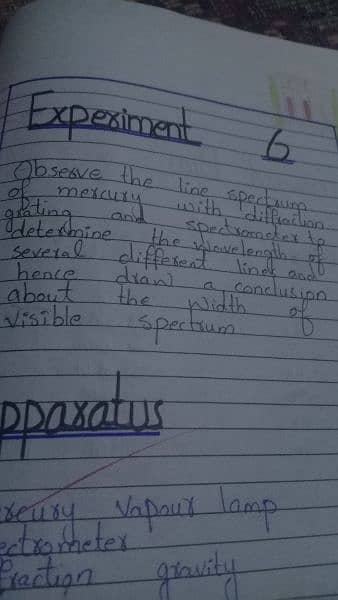 Experiment 6
Observe the line spectrum
of mercury with diffraction
grating and spectrometer to
determine the wavelength of
several different lines and
hence draw a conclusion
about the width of
visible spectrum
pparatus
rcury Vapour lamp
ectrometer
fraction gravity